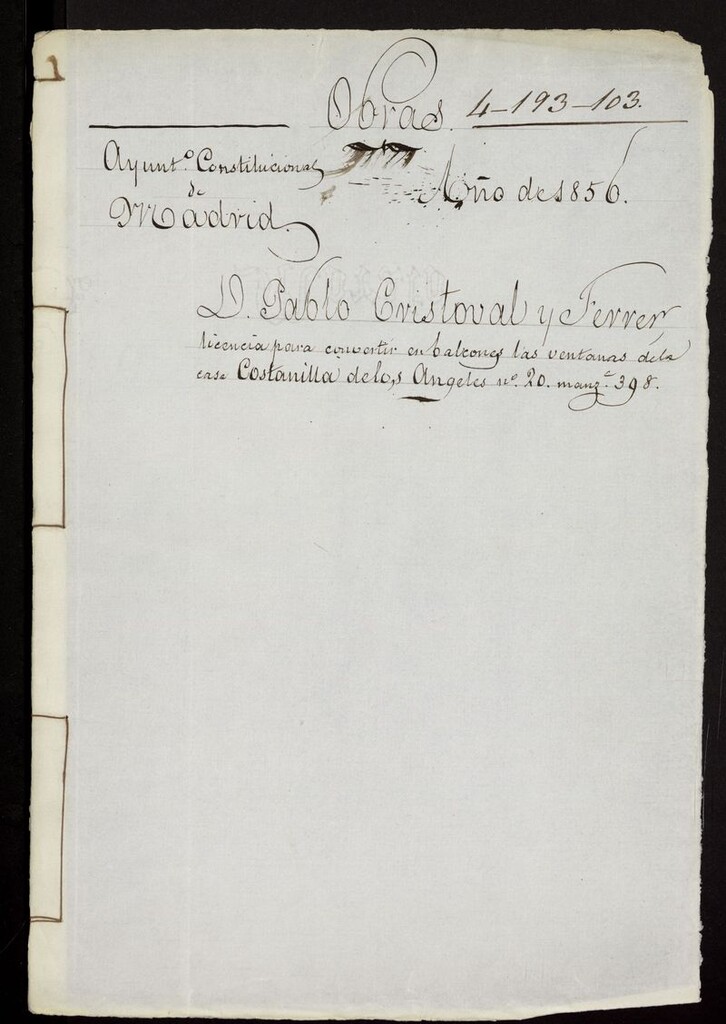 Obras. 4-193-103.
Ayunt.º Constitucional
de
Madrid.
Año de 1856.
D. Pablo Cristoval y Ferrer,
licencia para convertir en balcones las ventanas de la
casa Costanilla de los Angeles nº. 20. manz.ª 398.